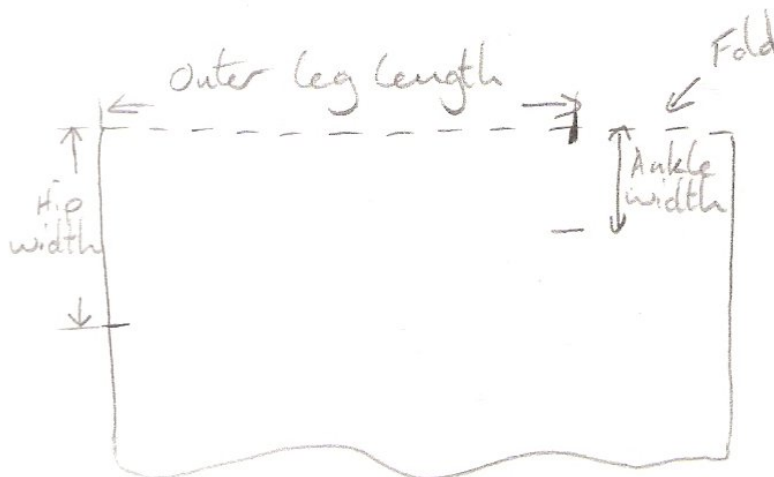 Outer leg length
Fold
Hip
width
Ankle
width